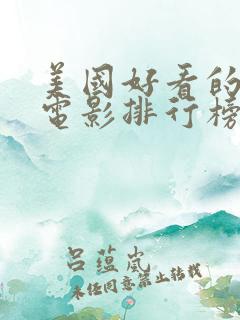 美國好看的
電影排行榜
呂蕴嵐
未经同意禁止转载